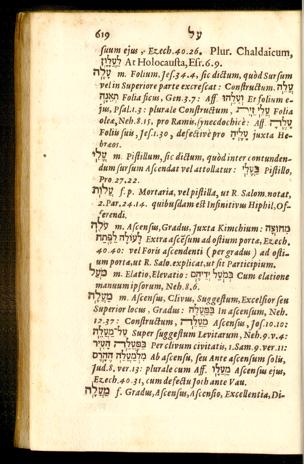 619 על
suum ejus, Ezech. 40. 26. Plur. Chaldaicum,
At Holocausta, Esr. 6. 9.
עָלֶה m. Folium, Jes. 34. 4, sic dictum, quòd Sursum
vel in Superiore parte excrescat: Constructum.
Folia ficus, Gen. 3. 7: Aff. Et folium e-
jus, Psal. 1. 3: plurale Constructum, Folia
oleæ, Neh. 8. 15, pro Ramis, synecdochicè: Aff.
Folii sui, Jes. 1. 30, defectivè pro juxta He-
bræos.
עֱלִי m. Pistillum, sic dictum, quòd inter contunden-
dum sursum Ascendat vel attollatur: Pistillo,
Pro. 27. 22.
f. p. Mortaria, vel pistilla, ut R. Salom. notat,
2. Par. 24. 14. quibusdam est Infinitivus Hiphil, Of-
ferendi.
m. Ascensus, Gradus, juxta Kimchium:
Extra ascensum ad ostium porta, Ezech.
40. 40: vel Foris ascendenti (per gradus) ad osti-
um porta, ut R. Salo. explicat, ut sit Participium.
מֹעַל m. Elatio, Elevatio: Cum elatione
manuum ipsorum, Neh. 8. 6.
מַעֲלֶה m. Ascensus, Clivus, Suggestum, Excelsior seu
Superior locus, Gradus: In ascensum, Neh.
12. 37: Constructum, Ascensus, Jos. 10. 10:
Super suggestum Levitarum, Neh. 9. v. 4:
Per clivum civitatis, 1. Sam. 9. ver. 11:
Ab ascensu, seu Ante ascensum solis,
Jud. 8. ver. 13: plurale cum Aff. Ascensus ejus,
Ezech. 40. 31, cum defectu Jod ante Vau.
מַעֲלָה f. Gradus, Ascensus, Ascensio, Excellentia, Di-